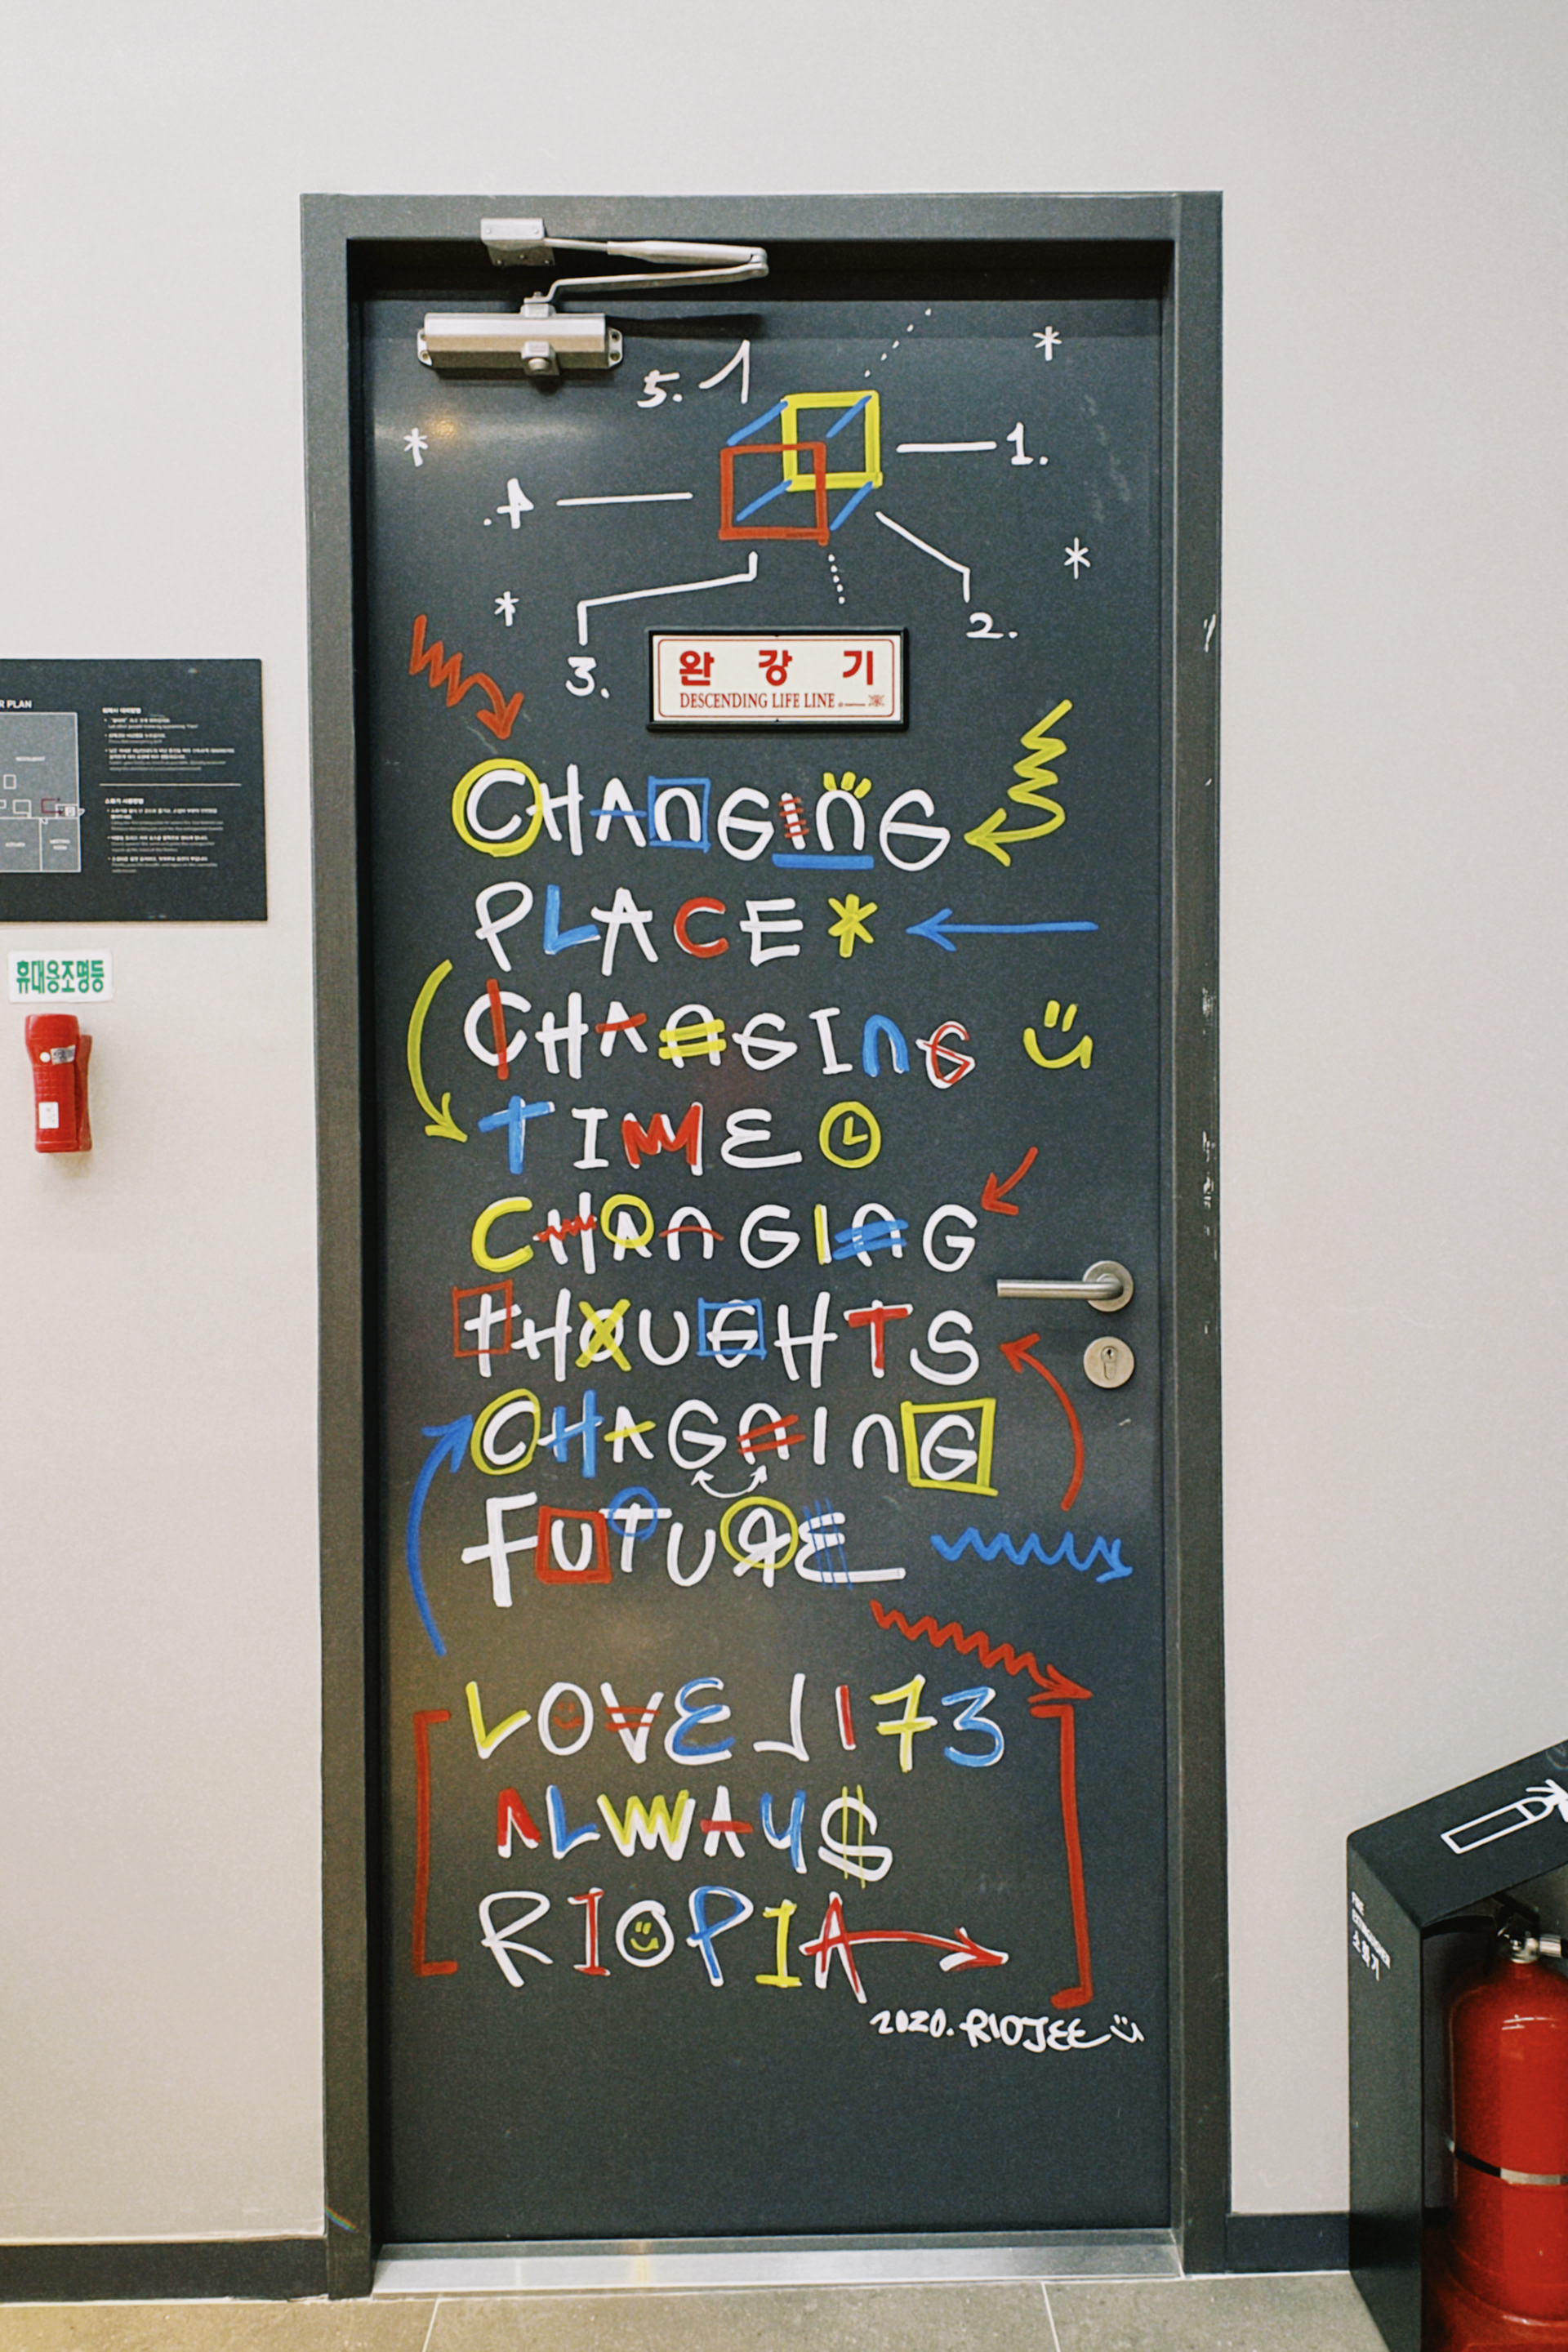 5.
1.
4.
2.
3.
완 강 기
DESCENDING LIFE LINE
CHANGING
PLACE *
CHANGING
TIME
CHANGING
THOUGHTS
CHAGNING
FUTURE
LOVE J173
ALWAYS
RIOPIA
2020. RIOJEE
R PLAN
휴대용조명등
소화기